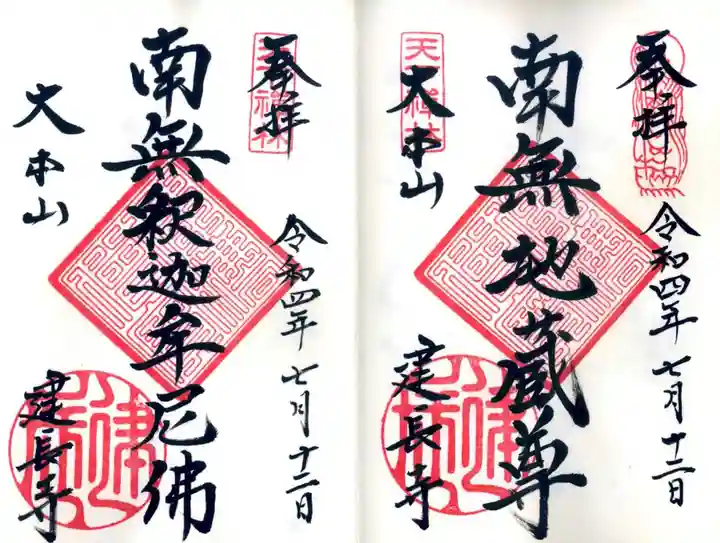 奉拝
令和四年七月十二日
南無地蔵尊
天下禅林
大本山
建長寺
奉拝
令和四年七月十二日
南無釈迦牟尼佛
大本山
建長寺